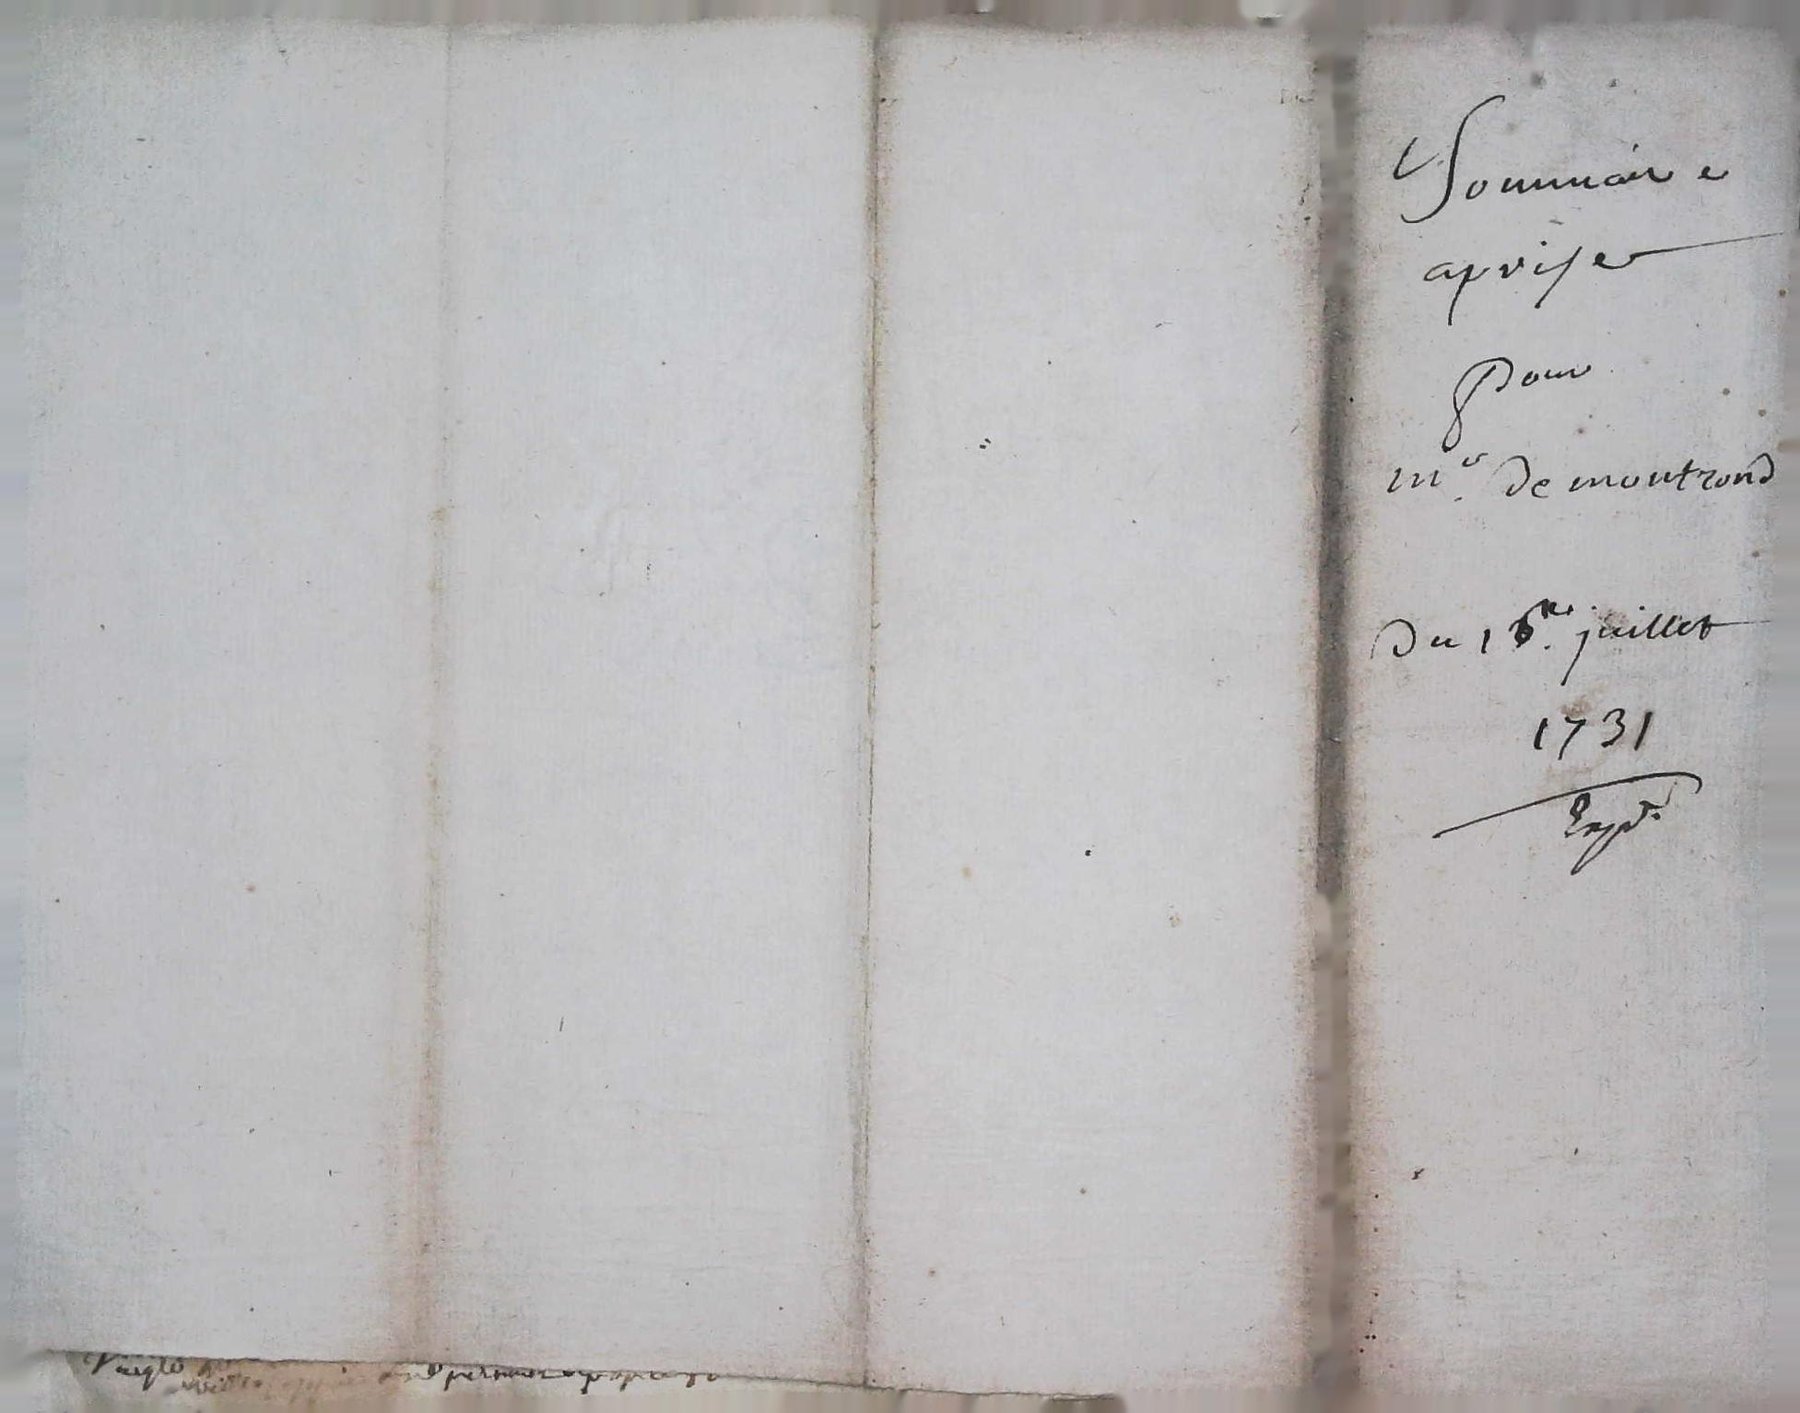 Sommaire
aprise
pour
mr. de montrond
Du 1 juillet
1731
Expd.